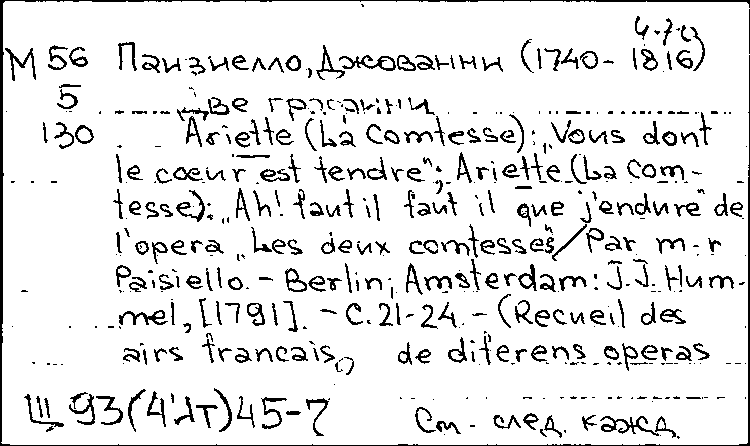 4-7-13
М 56 Паизиелло, Джованни (1740-1816)
5 Две графини
130 Ariette (La Comtesse): „Vous dont
le cœur est tendre“; Ariette (La Com-
tesse): „Ah! faut il faut il que j'endure“ de
l'opera „Les deux comtesses“/ Par m-r
Paisiello. - Berlin; Amsterdam: J.J. Hum-
mel, [1791]. - C. 21-24. - (Recueil des
airs francais, de diferens operas
Щ 93(4'Ит)45-7 См. след. кажд.